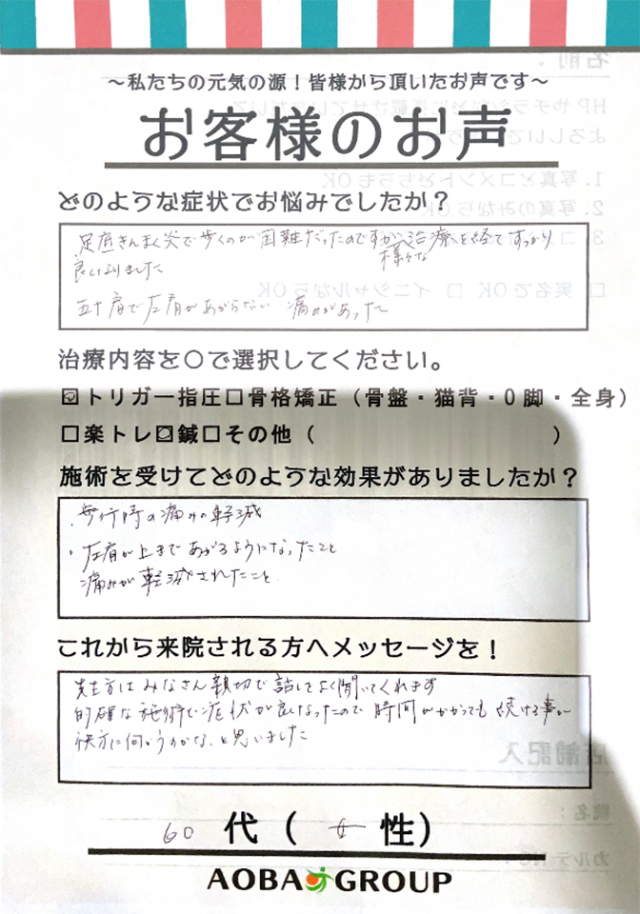 ～私たちの元気の源！皆様から頂いたお声です～
お客様のお声
どのような症状でお悩みでしたか？
足底きんまく炎で歩くのが困難だったのですが様々な治療を経てすっかり
良くなりました
五十肩で左肩があがらない 痛みがあった
治療内容を〇で選択してください。
☑トリガー指圧□骨格矯正（骨盤・猫背・O脚・全身）
□楽トレ☑鍼□その他（ ）
施術を受けてどのような効果がありましたか？
・歩行時の痛みの軽減
・左肩が上まであがるようになったこと
痛みが軽減されたこと
これから来院される方へメッセージを！
先生方はみなさん親切で話をよく聞いてくれます
的確な施術で症状が良くなったので時間がかかっても続ける事が
快方に向かうのかな、と思いました
60代（女性）
AOBA GROUP